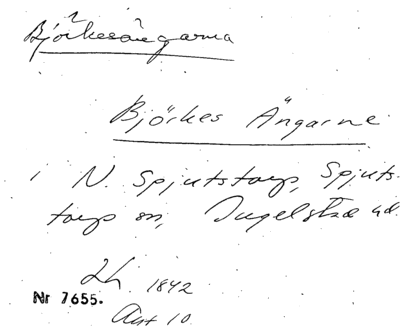 Björkesängarna
Björkes Ängarne
i N. Spjutstorp, Spjuts-
torp sn, Ingelstad hd.
Lh 1842
Akt 10
Nr 7655.